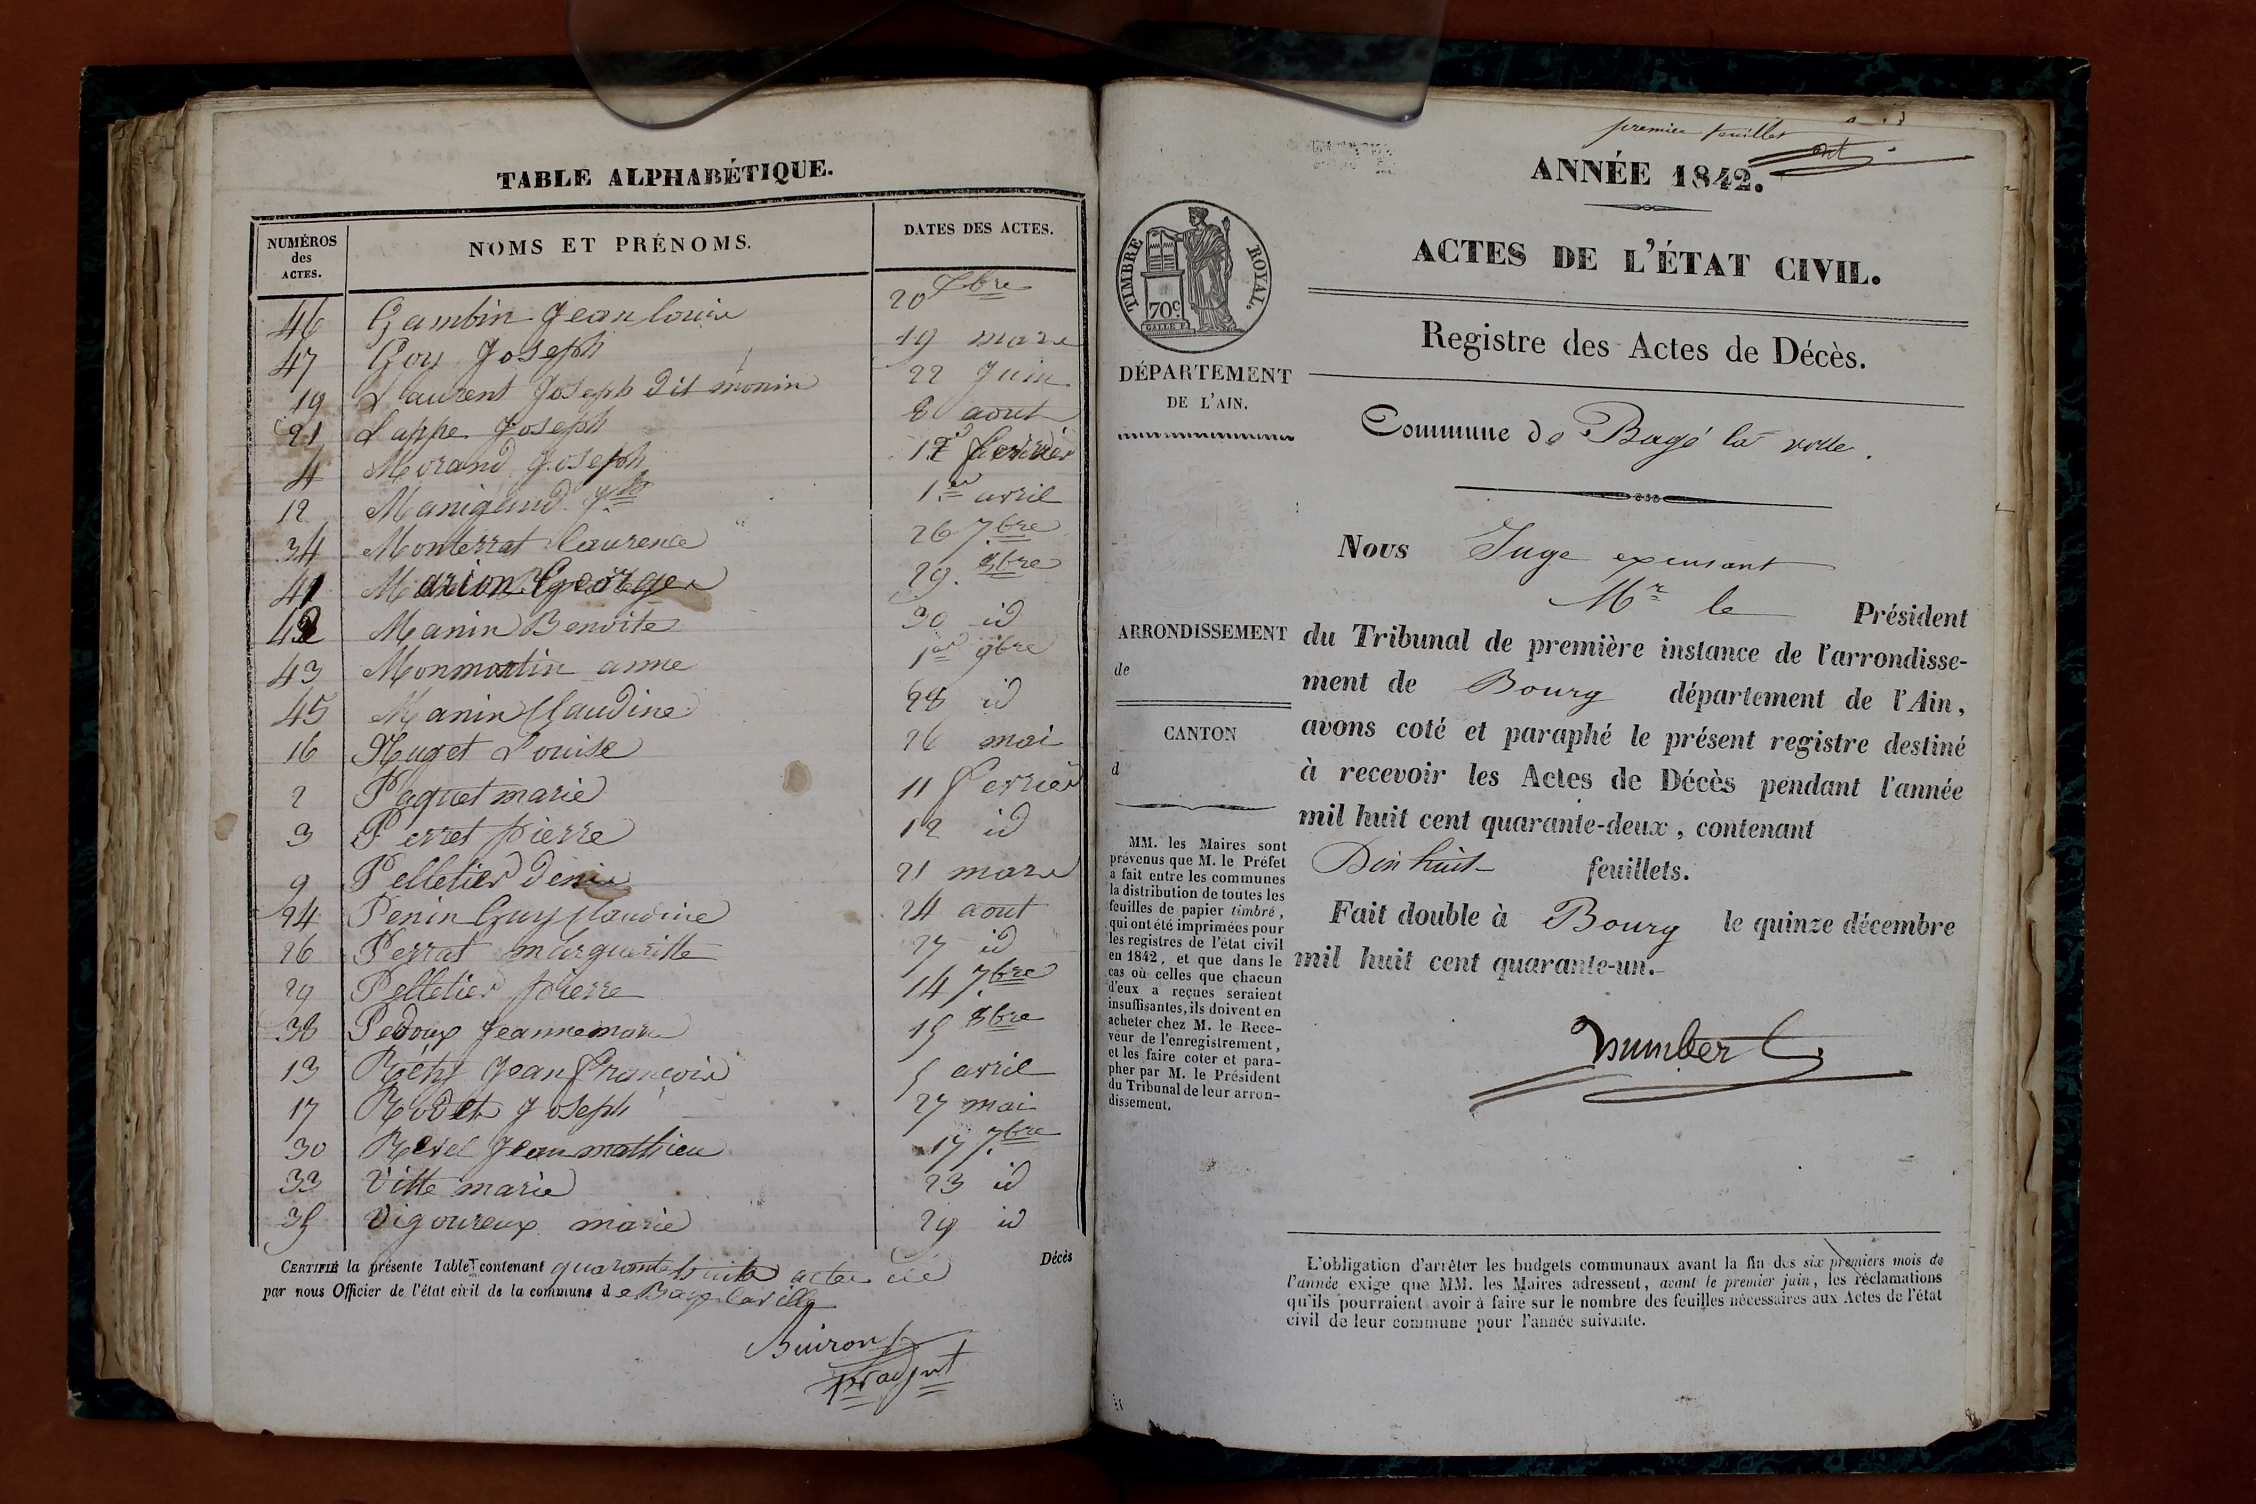 TABLE ALPHABÉTIQUE.
NUMÉROS des ACTES. NOMS ET PRÉNOMS. DATES DES ACTES.
46 Gambin Jean louis 20 Xbre
47 Goy Joseph 19 mars
19 Laurent Joseph dit monin 22 Juin
21 Lappe Joseph 8 aout
4 Morand Joseph fevrier
12 Manigand 1er avril
34 Monterrat laurence 26 7bre
41 Marion George 29 8bre
42 Manin Benoite 30 id
43 Monmartin anne 1er 9bre
45 Manin Claudine 28 id
16 Nuget Louise 26 mai
2 Paquet marie 11 fevrier
3 Perret pierre 12 id
9 Pelletier denis 21 mars
24 Penin Guy Claudine 24 aout
26 Perrat margueritte 27 id
29 Pelletier pierre 14 7bre
38 Pedoux Jeanne marie 15 8bre
13 Réty Jean françois 5 avril
17 Rodet Joseph 27 mai
30 Revel Jean mathieu 17 7bre
33 Vitte marie 23 id
35 Vigoureux marie 29 id
CERTIFIÉ la présente Table contenant quarante huit actes de Décès
par nous Officier de l'état civil de la commune de Bagé la ville
Buiron
adjoint
premier feuillet
ANNÉE 1842.
ACTES DE L'ÉTAT CIVIL.
Registre des Actes de Décès.
Commune de Bagé la ville.
TIMBRE ROYAL.
70c.
GALLE F.
DÉPARTEMENT
DE L'AIN.
ARRONDISSEMENT
de
CANTON
d
MM. les Maires sont
prévenus que M. le Préfet
a fait entre les communes
la distribution de toutes les
feuilles de papier timbré,
qui ont été imprimées pour
les registres de l'état civil
en 1842, et que dans le
cas où celles que chacun
d'eux a reçues seraient
insuffisantes, ils doivent en
acheter chez M. le Rece-
veur de l'enregistrement,
et les faire coter et para-
pher par M. le Président
du Tribunal de leur arron-
dissement.
Nous Juge exerçant
Mr le Président
du Tribunal de première instance de l'arrondisse-
ment de Bourg département de l'Ain,
avons coté et paraphé le présent registre destiné
à recevoir les Actes de Décès pendant l'année
mil huit cent quarante-deux, contenant
Dix huit feuillets.
Fait double à Bourg le quinze décembre
mil huit cent quarante-un.
L'obligation d'arrêter les budgets communaux avant la fin des six premiers mois de
l'année exige que MM. les Maires adressent, avant le premier juin, les réclamations
qu'ils pourraient avoir à faire sur le nombre des feuilles nécessaires aux Actes de l'état
civil de leur commune pour l'année suivante.